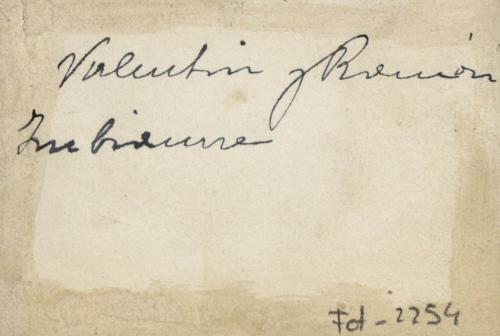 Valentin y Ramón
Zubiaurre
Fot-2254